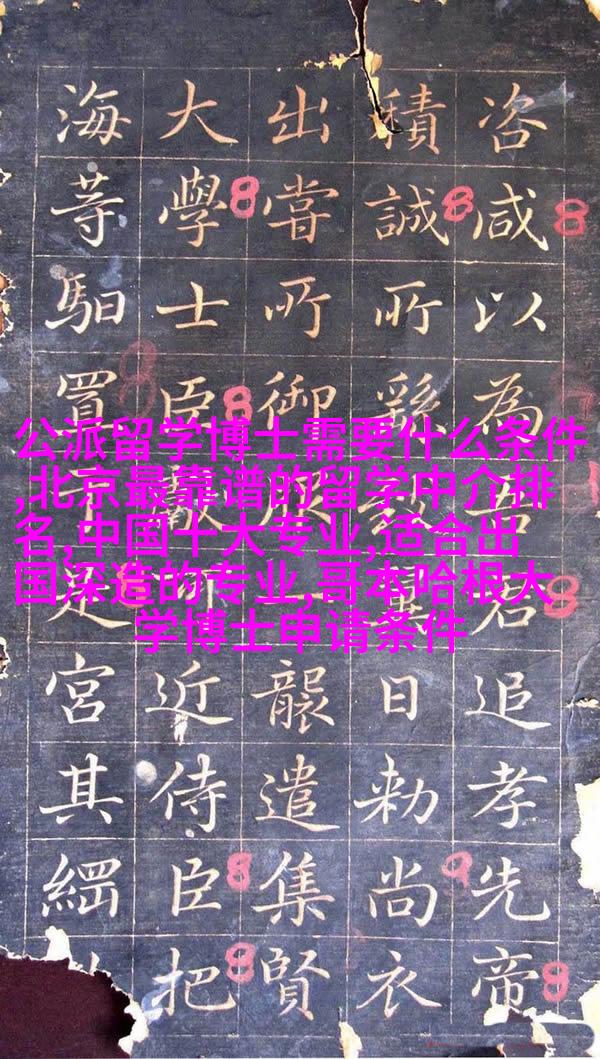 咨咸以為吾君追孝先帝
積誠所繇日勅尚衣
出嘗所御服襲遣集賢
大學士臣近侍臣把
海等馹置宮其繝
公派留学博士需要什么条件
,北京最靠谱的留学中介排
名,中国十大专业,适合出
国深造的专业,哥本哈根大
学博士申请条件